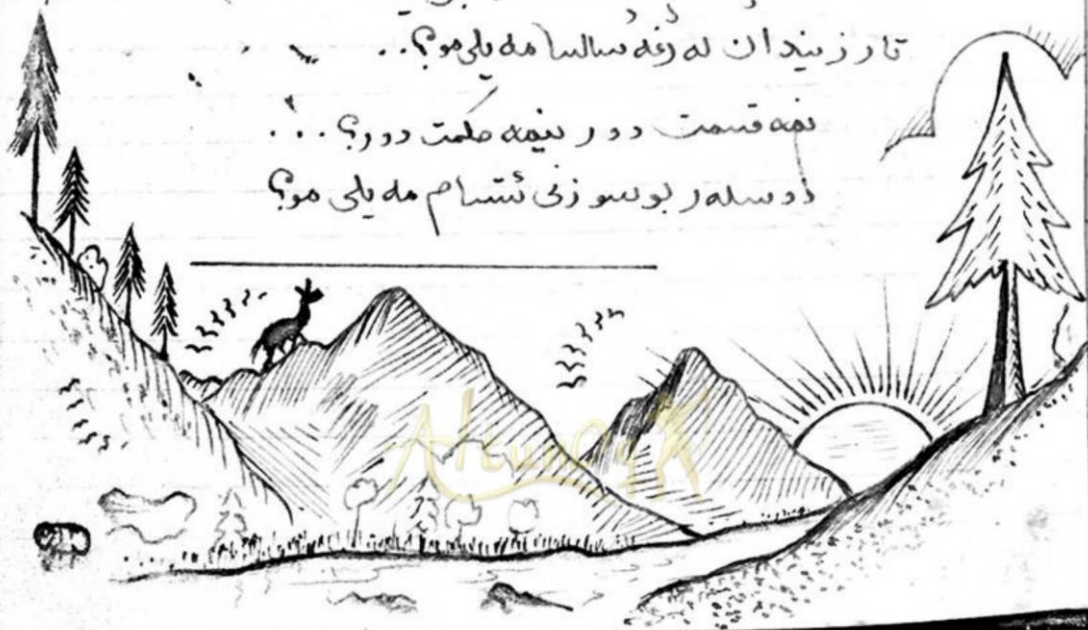 تار زیندان له رغه سالسا مه یلی مو؟..
نمه قسمت دور نیمه حکمت دور؟...
دوسله ر بو سوزنی ئتسام مه یلی مو؟